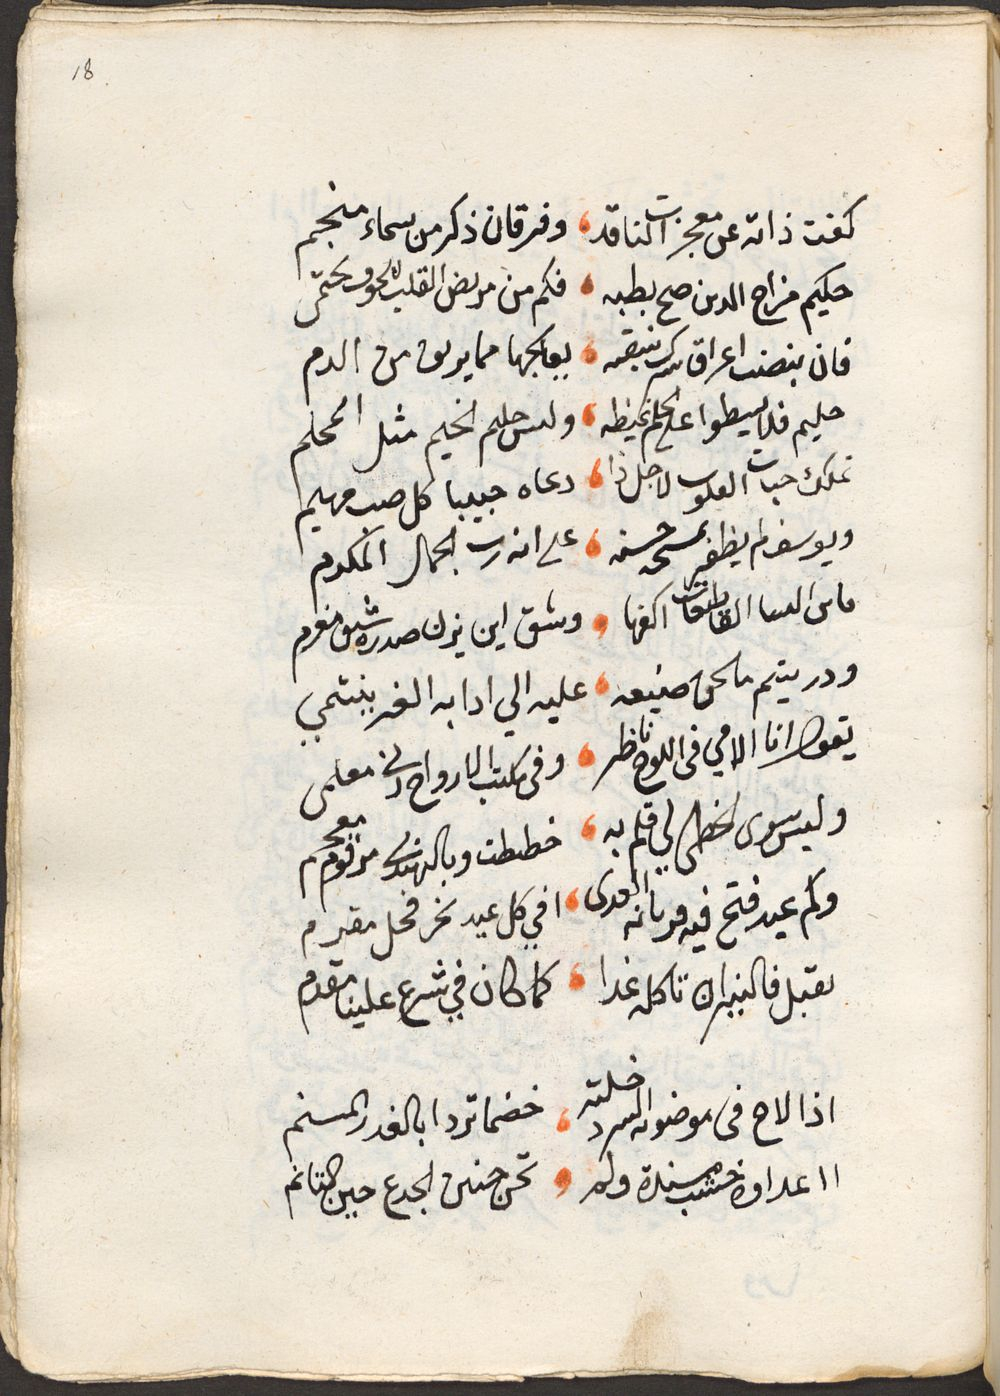 18
كفت ذاته عن معجزات الناقد، وفرقان ذكر من سماء منجم
حكيم مزاج الدين صح بطبه، فكم من مريض القلب نحوه يحتمى
فان بنضت اعراق شرك بنبضه، يعالجها مما يريق من الدم
حليم فلا يسطوا على الحلم غيظه، وليس حليم الخيم مثل المحلم
تملك حبات القلوب لاجل ذا، دعاه حبيبا كل صب مهيم
ويوسف لم يظفر بمسحى حسنه، على انه رب الجمال المكرم
النسا القاطعات اكفها، وشق اين نزل صدره شق مغرم
ودر يتيم ما لحق صنيعه، عليه الي ادابه الغر ينتمي
يقول انا الامي في اللوح ناظر، وفي مكتب الارواح ربي معلمى
وليس سوى لخطى لي قلم به، خططت وبالهندى مرقوم معجم
وكم عيد فتح فيه قربانه العدى، افي كل عيد نحر فحل مقرم
تقبل فالنيران تاكله غدا، كما كان في شرع علينا مقدم
اذا لاح فى موضونه السرد خلته، خضما تردا بالغدر المسنم
اا عداوه خشب مسندة ولم، تحن حنين الجدع حين التانم